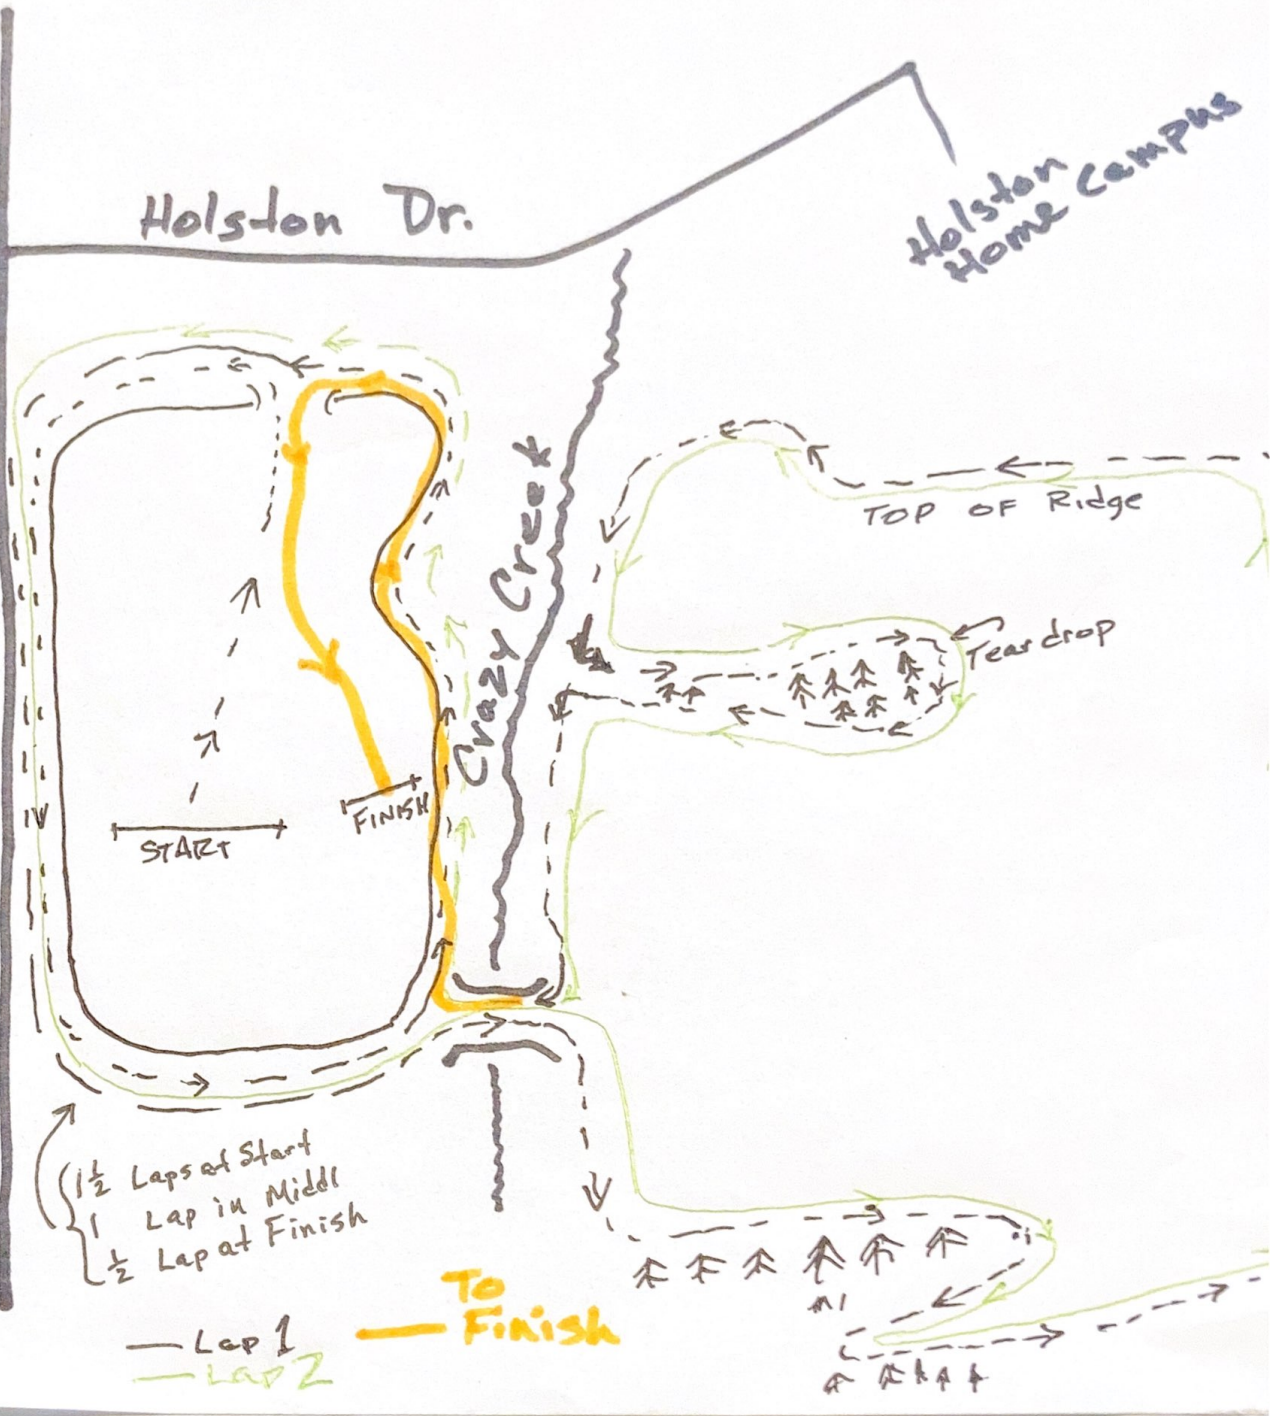 Holston Dr.
Holston
Home Campus
Crazy Creek
TOP OF Ridge
Teardrop
START
FINISH
1 1/2 Laps at Start
1 Lap in Middl
1/2 Lap at Finish
Lap 1
Lap 2
To
Finish
M1